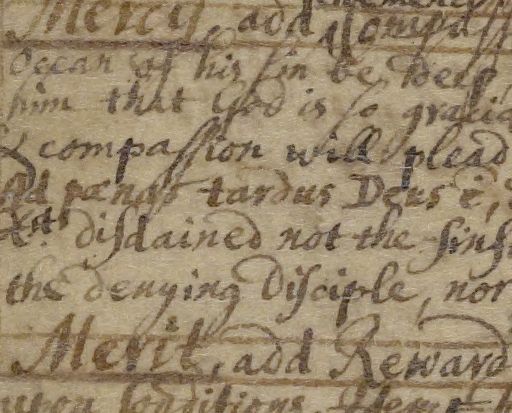 Mercy, add Compass
Ocean of his sin be deep,
him that God is so gracio
& compassion will plead
Ad pœnas tardus Deus ē,
Xst disdained not the sinf
the denying Disciple, nor
Merit, add Reward
upon Conditions